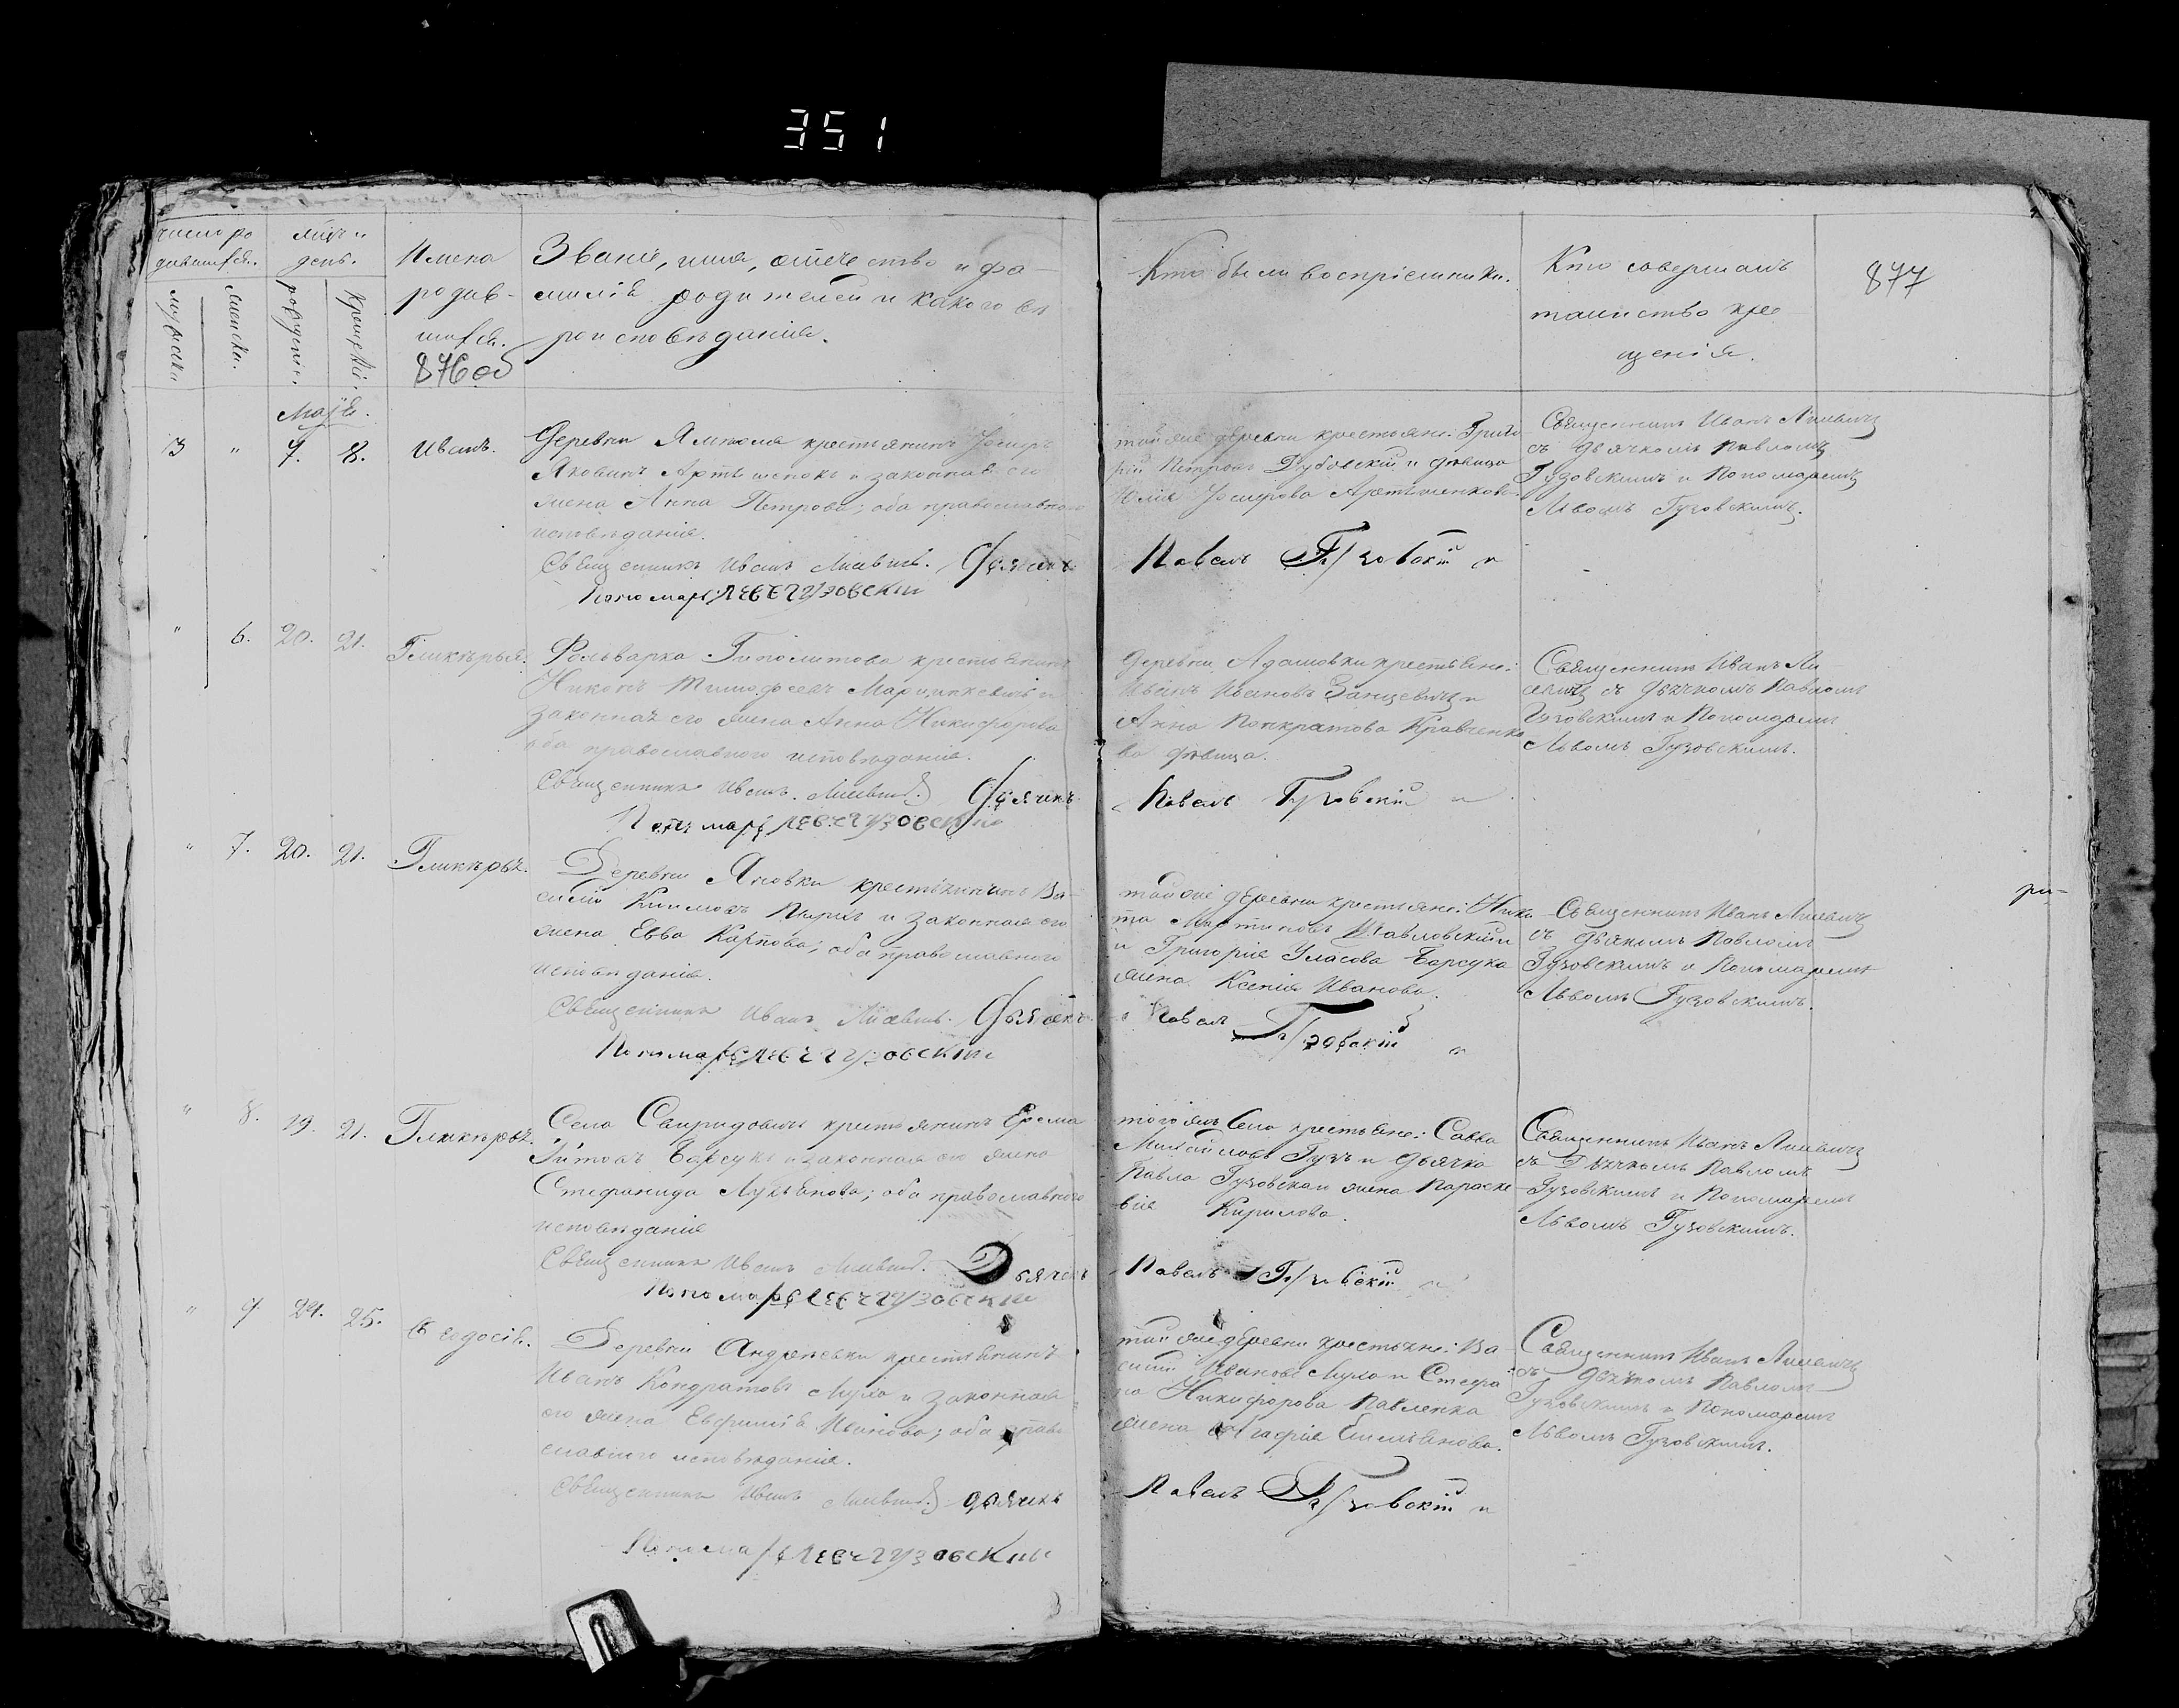 351
число ро
дившихся.
мужеска
женска.
мѣсяцъ и
день.
рожденія.
крещенія.
Имена
родив-
шихся.
876 об
Званіе, имя, отечество и фа-
милія родителей и какого вѣ
роисповѣданія.
Кто были воспріемники.
Кто совершалъ
таинство кре
щенія.
877
Маія.
13 " 7. 8. Иванъ.
Деревни крестьянинъ
Яковинъ и законная его
жена Анна Петрова; оба православнаго
исповѣданія.
Священникъ Иванъ Дьячекъ
Пономарь Левъ Гузовскій
той же деревни крестьяне: Григо
рій Петровъ Дубовскій и дѣвица
Юлія
Павелъ Гузовскій и
Священникъ Иванъ
съ Дьячкомъ Павломъ
Гузовскимъ и Пономаремъ
Львомъ Гузовскимъ.
" 6. 20. 21. Гликерья.
Фольварка Гиполитова крестьянинъ
Никонъ Тимофеевъ Марцинкевичъ и
законная его жена Анна Никифорова
оба православнаго исповѣданія.
Священникъ Иванъ Дьячекъ
Пономарь Левъ Гузовскій
Деревни Адамовки крестьяне:
Иванъ Ивановъ и
Анна Панкратова Кравченко
ва дѣвица.
Павелъ Гузовскій и
Священникъ Иванъ
съ Дьячкомъ Павломъ
Гузовскимъ и Пономаремъ
Львомъ Гузовскимъ.
" 7. 20. 21. Гликерья.
Деревни Яновки крестьянинъ Ва-
силій Климовъ и законная его
жена Евва Карпова; оба православнаго
исповѣданія.
Священникъ Иванъ Дьячекъ
Пономарь Левъ Гузовскій
той же деревни крестьяне: Ники
та Мартиновъ
и Григорія Уласова Барсука
жена Ксенія Иванова.
Павелъ Гузовскій и
Священникъ Иванъ
съ Дьячкомъ Павломъ
Гузовскимъ и Пономаремъ
Львомъ Гузовскимъ.
ри-
" 8. 19. 21. Гликерья.
Села Свиридовичъ крестьянинъ Ерема
Титовъ Барсукъ и законная его жена
Стефанида Лукьянова; оба православнаго
исповѣданія
Священникъ Иванъ Дьячекъ
Пономарь Левъ Гузовскій
того жъ села крестьяне: Савва
Михайловъ Гузъ и дьячка
Павла Гузовскаго жена Параске
вія Кирилова.
Павелъ Гузовскій
Священникъ Иванъ
съ Дьячкомъ Павломъ
Гузовскимъ и Пономаремъ
Львомъ Гузовскимъ.
" 9 24. 25. Ѳеодосія.
Деревни Андреевки крестьянинъ
Иванъ Кондратовъ Муха и законная
его жена Евфимія Иванова; оба право
славнаго исповѣданія.
Священникъ Иванъ Дьячекъ
Пономарь Левъ Гузовскій
той же деревни крестьяне: Ва
силій Ивановъ Муха и Стефа
на Никифорова Павленка
жена Агафія Емельянова.
Павелъ Гузовскій и
Священникъ Иванъ
съ Дьячкомъ Павломъ
Гузовскимъ и Пономаремъ
Львомъ Гузовскимъ.